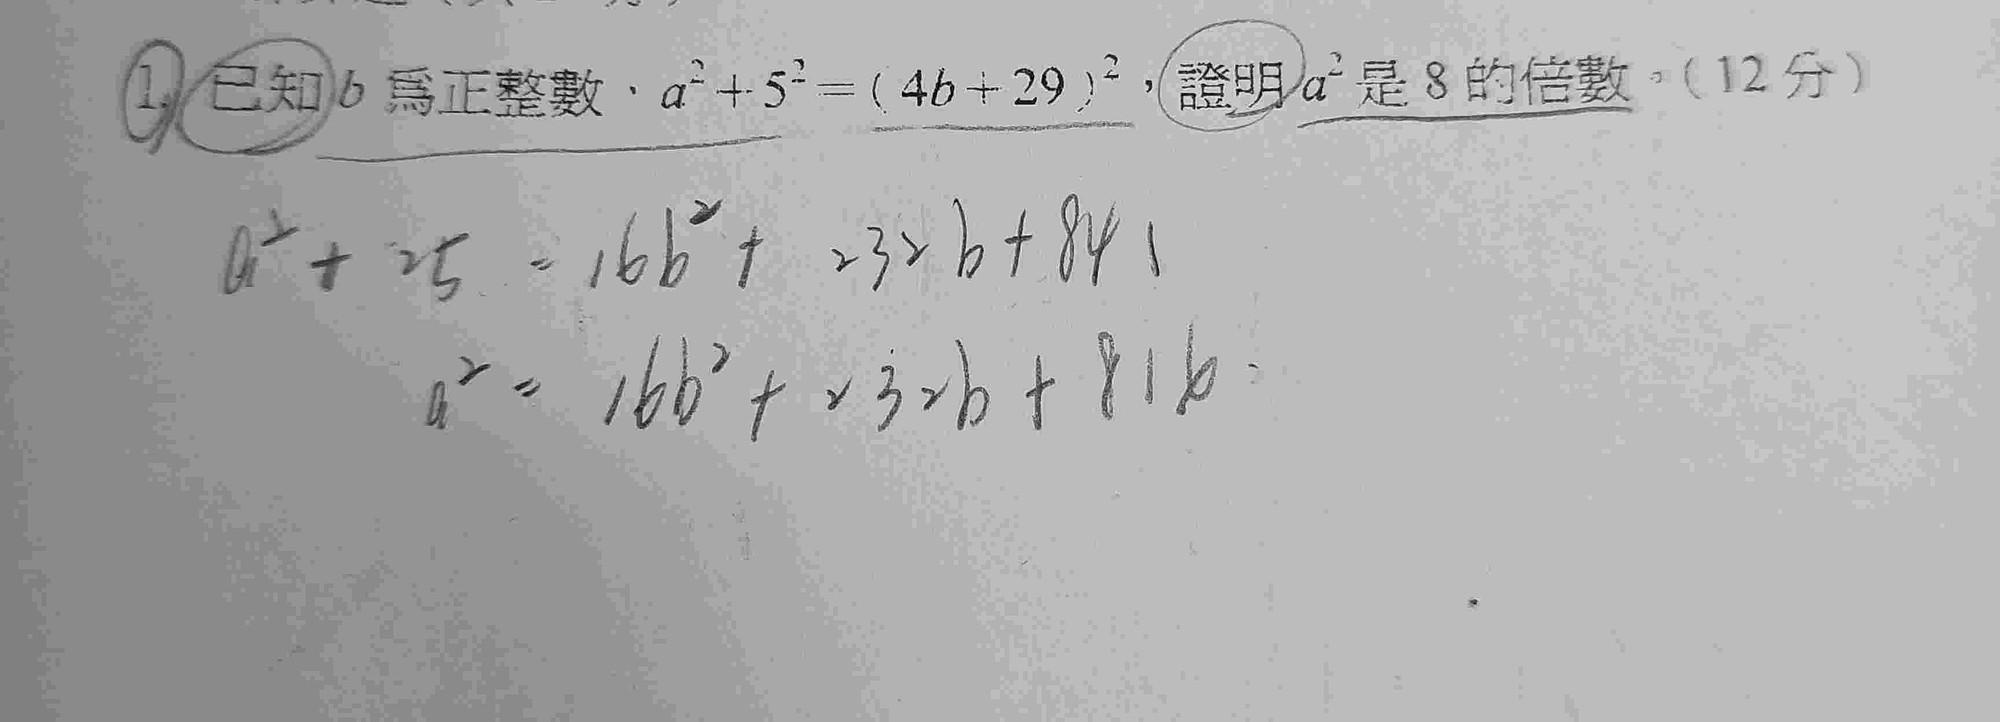 1. 已知 b 爲正整數，a² + 5² = ( 4b + 29 )²，證明 a² 是 8 的倍數。( 12 分 )
a² + 25 = 16b² + 232b + 841
a² = 16b² + 232b + 816